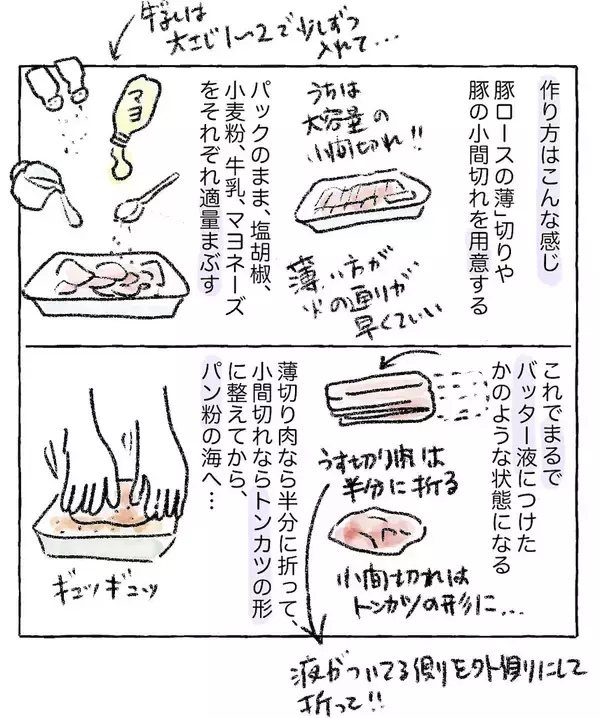 牛乳は
大さじ1〜2で少しずつ
入れて…
作り方はこんな感じ
豚ロースの薄」切りや
豚の小間切れを用意する
うちは
大容量の
小間切れ!!
薄い方が
火の通りが
早くていい
マヨ
パックのまま、塩胡椒、
小麦粉、牛乳、マヨネーズ
をそれぞれ適量まぶす
これでまるで
バッター液につけた
かのような状態になる
うす切り肉は
半分に折る
小間切れは
トンカツの形に…
薄切り肉なら半分に折って、
小間切れならトンカツの形
に整えてから、
パン粉の海へ…
ギュッギュッ
液がついてる側りを外側りにして
折って!!